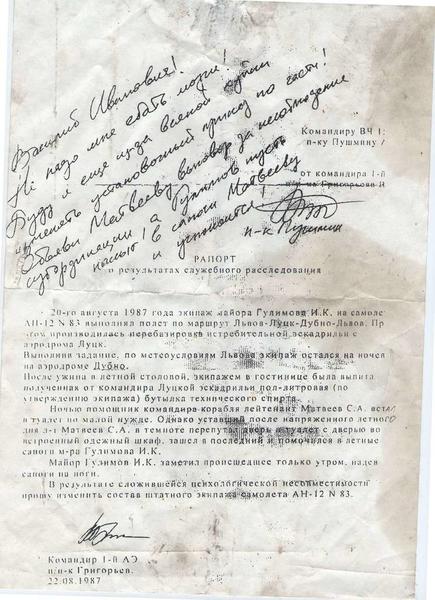 Василий Иванович!
Не надо мне ебать мозги!
Буду я еще из-за всякой хуйни
менять установочный приказ по части!
Объяви Матвееву выговор за несоблюдение
а Гулимов пусть
в сапоги Матвееву
и успокоится!
п-к Пушмин
Командиру ВЧ
п-ку Пушмину
от командира 1-й
п/п-ка Григорьева В
РАПОРТ
о результатах служебного расследования
20-го августа 1987 года экипаж майора Гулимова И.К. на самоле
АН-12 N 83 выполнял полет по маршрут Львов-Луцк-Дубно-Львов. Пр
этом производилась перебазировка истребительной эскадрильи с
аэродрома Луцк.
Выполнив задание, по метеоусловиям Львова экипаж остался на ночев
на аэродроме Дубно.
После ужина в летной столовой, экипажем в гостинице была выпита
полученная от командира Луцкой эскадрильи пол-литровая (по
утверждению экипажа) бутылка технического спирта.
Ночью помощник командира корабля лейтенант Матвеев С.А. встал
в туалет по малой нужде. Однако уставший после напряженного летного
дня л-т Матвеев С.А. в темноте перепутал дверь в туалет с дверью во
встроенный одежный шкаф, зашел в последний и помочился в летные
сапоги м-ра Гулимова И.К.
Майор Гулимов И.К. заметил происшедшее только утром, надев
сапоги на ноги.
В результате сложившейся психологической несовместимости
прошу изменить состав штатного экипажа самолета АН-12 N 83.
Командир 1-й АЭ
п/п-к Григорьев.
22.08.1987